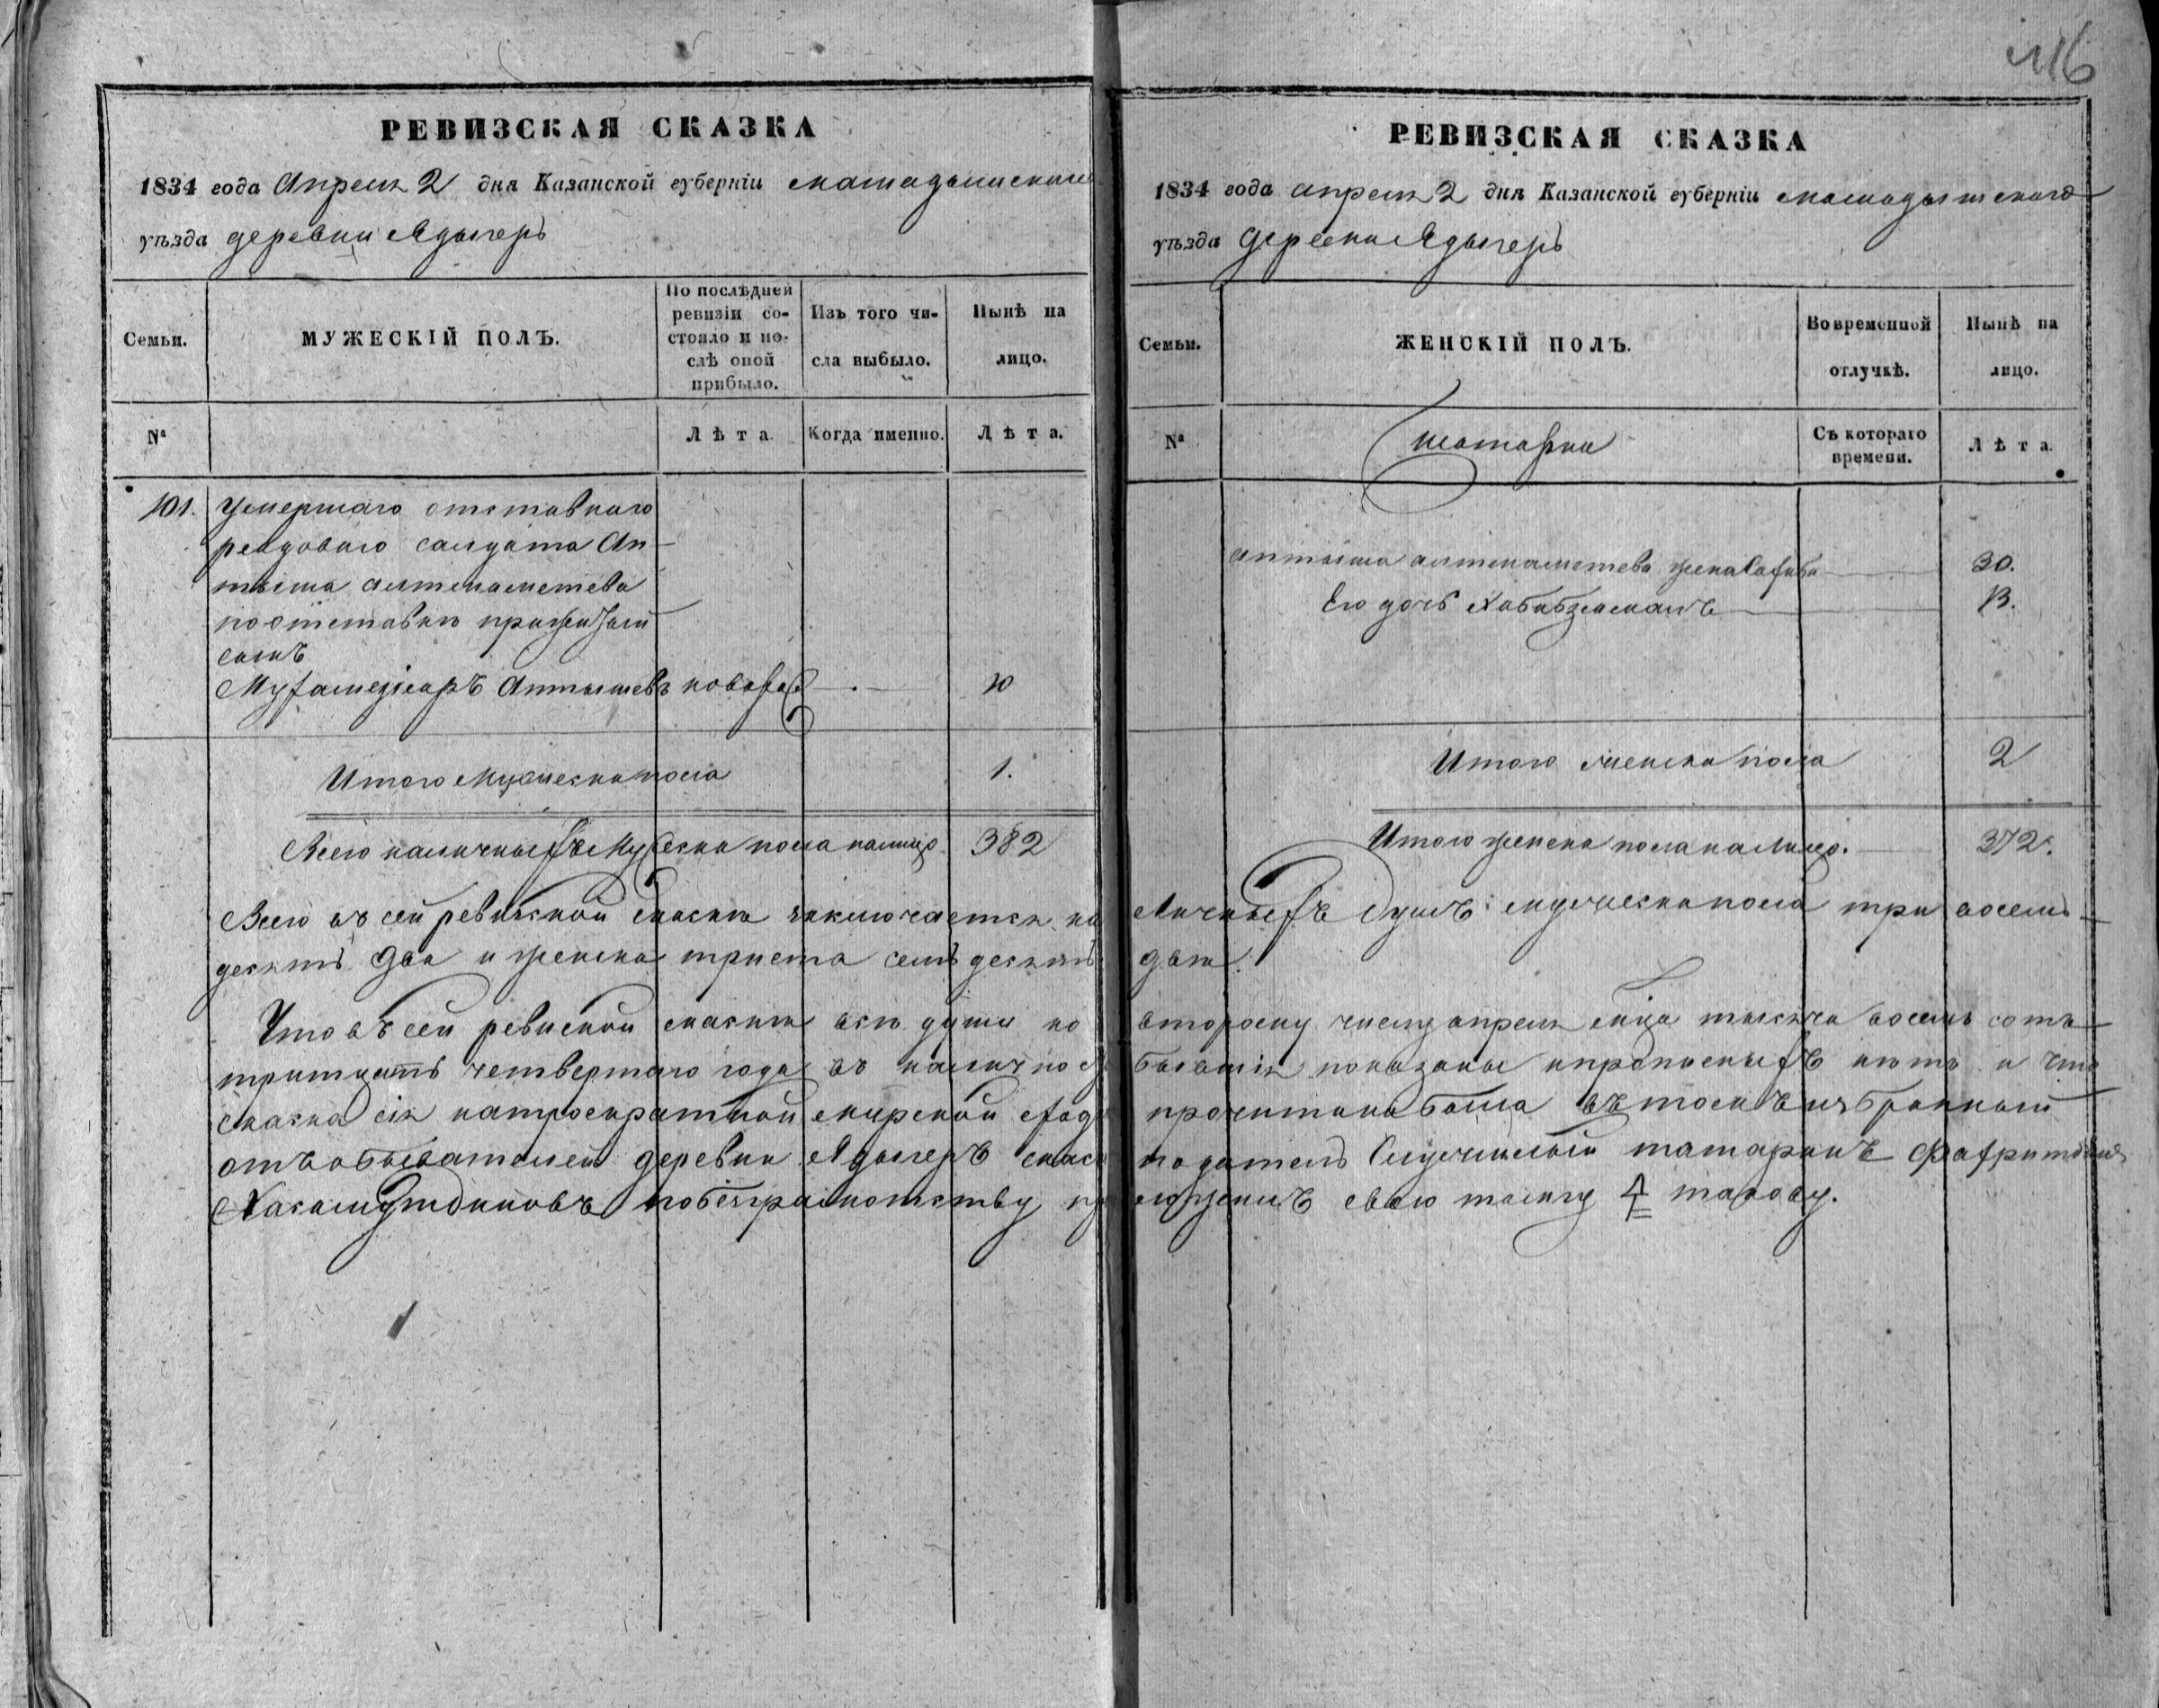 116
РЕВИЗСКАЯ СКАЗКА
1834 года Апреля 2 дня Казанской губерніи мамадышскаго
уѣзда деревни Ядыгеръ
Семьи.
МУЖЕСКІЙ ПОЛЪ.
По послѣдней ревизіи состояло и послѣ оной прибыло.
Изъ того числа выбыло.
Нынѣ на лицо.
№
Лѣта.
Когда именно.
Лѣта.
101. умершаго отставнаго
редоваго салдата Ап
тыша
поотставки прижитый
сынъ
Мухамедіаръ Аптышевъ новорож 10
Итого мужеска пола 1.
Всего наличныхъ мужеска пола налицо 382
РЕВИЗСКАЯ СКАЗКА
1834 года апреля 2 дня Казанской губерніи мамадышскаго
уѣзда деревни Ядыгеръ
Семьи.
ЖЕНСКІЙ ПОЛЪ.
Во временной отлучкѣ.
Нынѣ на лицо.
№
татарки
Съ котораго времени.
Лѣта.
аптыша жена 30.
Его дочь 13.
Итого женска пола 2
Итого женска пола налицо. 372.
Всего въ сей ревижской скаске заключается на личныхъ душъ: мужеска пола три восемь
десятъ два и женска триста семь десятъ две.
Что въ сей ревиской скаске все души по второму числу апреля мца тысяча восемь сотъ
тритцать четвертаго года въ наличнос бывшія показаны ипрописныхъ нетъ и что
скаска сія натроекратной мирской сход прочитана была въ томъ избранный
отъобывателей деревни Ядыгеръ скаск податель Служилый татаринъ
побезграмотству пр ложилъ свою тамгу такову.